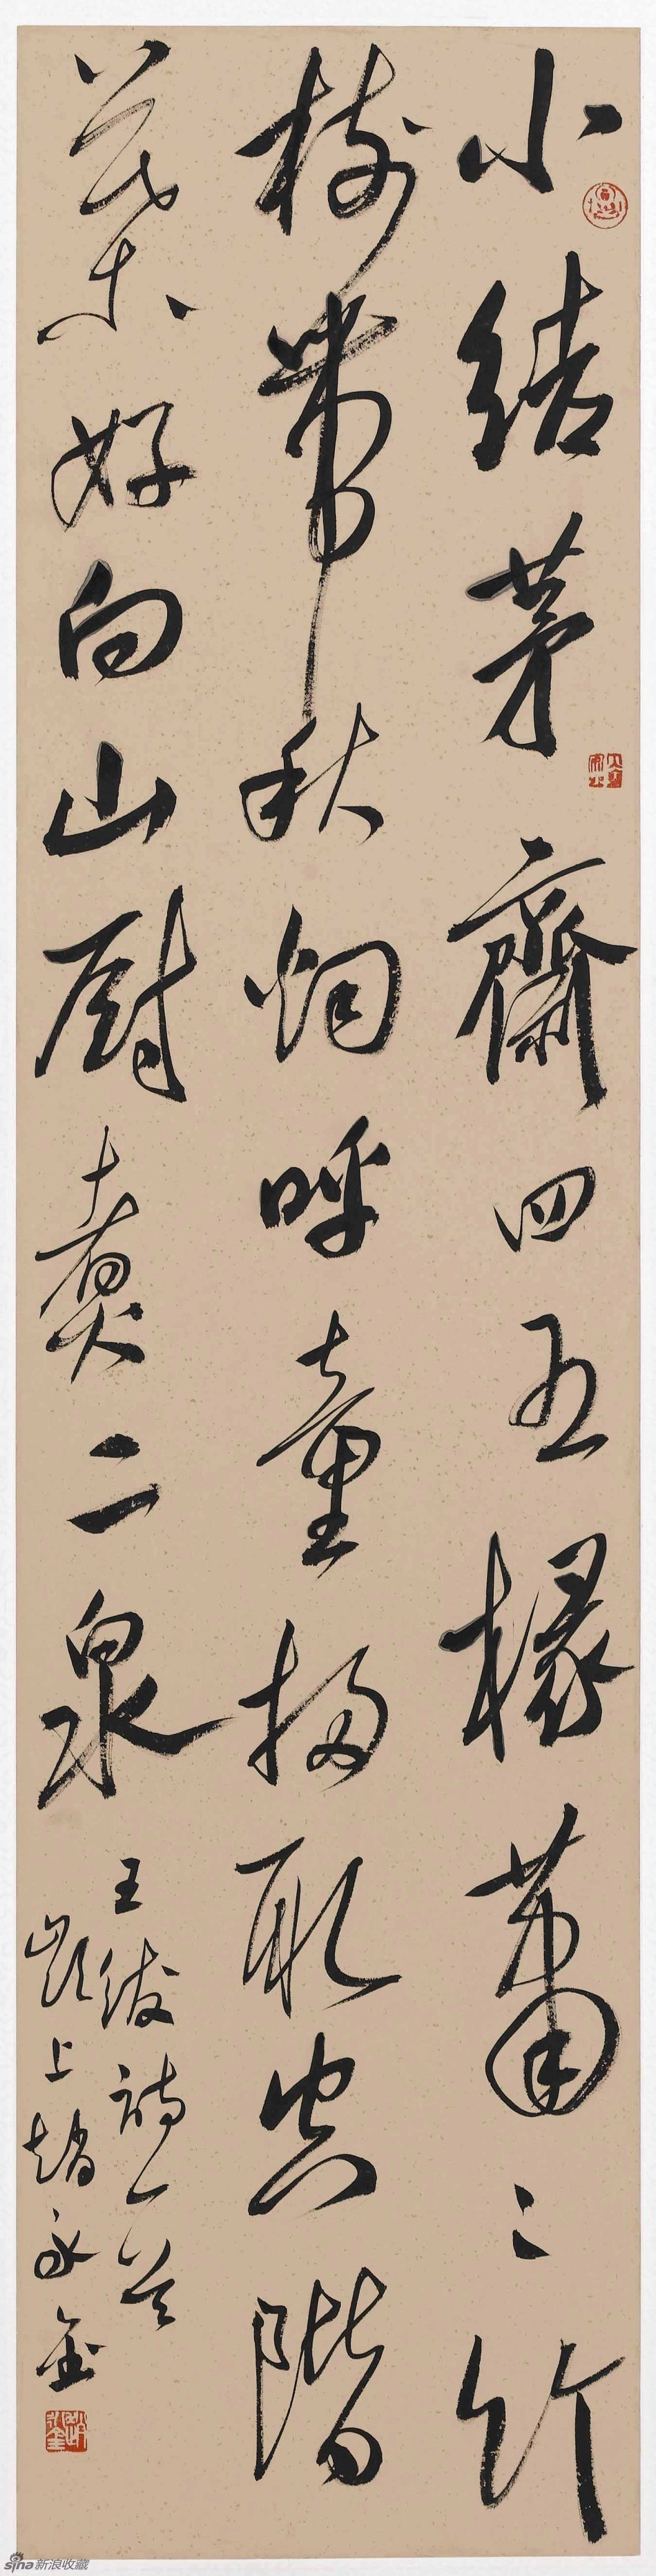 小結茅齋四五椽蕭〻竹
樹帶秋烟呼童掃取空階
葉好向山厨煮二泉
王紱詩一首
上趙永金
sina新浪收藏